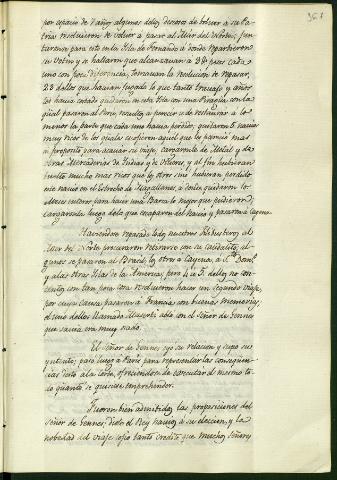 por espacio de 7 años, algunos dellos deseosos de bolver a su Pa-
tria resolvieron de volver á pasar al Mar del Norte, jun-
taronse para esto en la Isla de Fernando á donde repartieron
su Botin y se hallaron que alcanzavan á cada
uno con poca diferencia, tomavan la resolucion de repasar,
23 dellos que havian jugado lo que tanto trevajo y años
les havia costado quedaron en esta Isla con una Piragua, con la
qual pasaron al Peru, resueltos a perecer u de restaurar a lo
menos la parte que cada uno havia perdido,
muy ricos de los quales
a proposito para acavar su viaje, cargaronle de Metal y de
otras Mercaderias de Indias y de Viveres, y al fin hubieran
buelto mucho mas ricos que los otros sino hubieran perdido
este navio en el Estrecho de Magallanes, a donde quedaron 10
Meses enteros para hacer una Barca lo mejor que pudieron,
cargaronla luego de lo que escaparon del Navio y pasaron a Cayena.
Haviendo repasado todos nuestros Filibusteros al
Mar del Norte procuraron retirarse con su caudalito, al-
gunos se pasaron al Brasil, los otros a Cayena, a Sto. Domo.
y a las otras Islas de la America, pero 4 ú 5 dellos no con-
tentos con tan poca cosa resolvieron hacer un segundo viaje,
por cuya causa pasaron á Francia con buenas memorias,
el uno dellos llamado Macerti ablo con el Señor de Gennes
que savia era muy osado.
El Señor de Gennes oyo su relacion y supo su
yntento, pasó luego a Paris para representar las consequen-
cias desto a la Corte, ofreciendose de executar el mismo to-
do quanto se quisiese emprehender.
Fueron bien admitidas las proposiciones del
Señor de Gennes, diole el Rey navios á su eleccion, y la
nobedad del viaje cojio tanto credito que muchos Señores